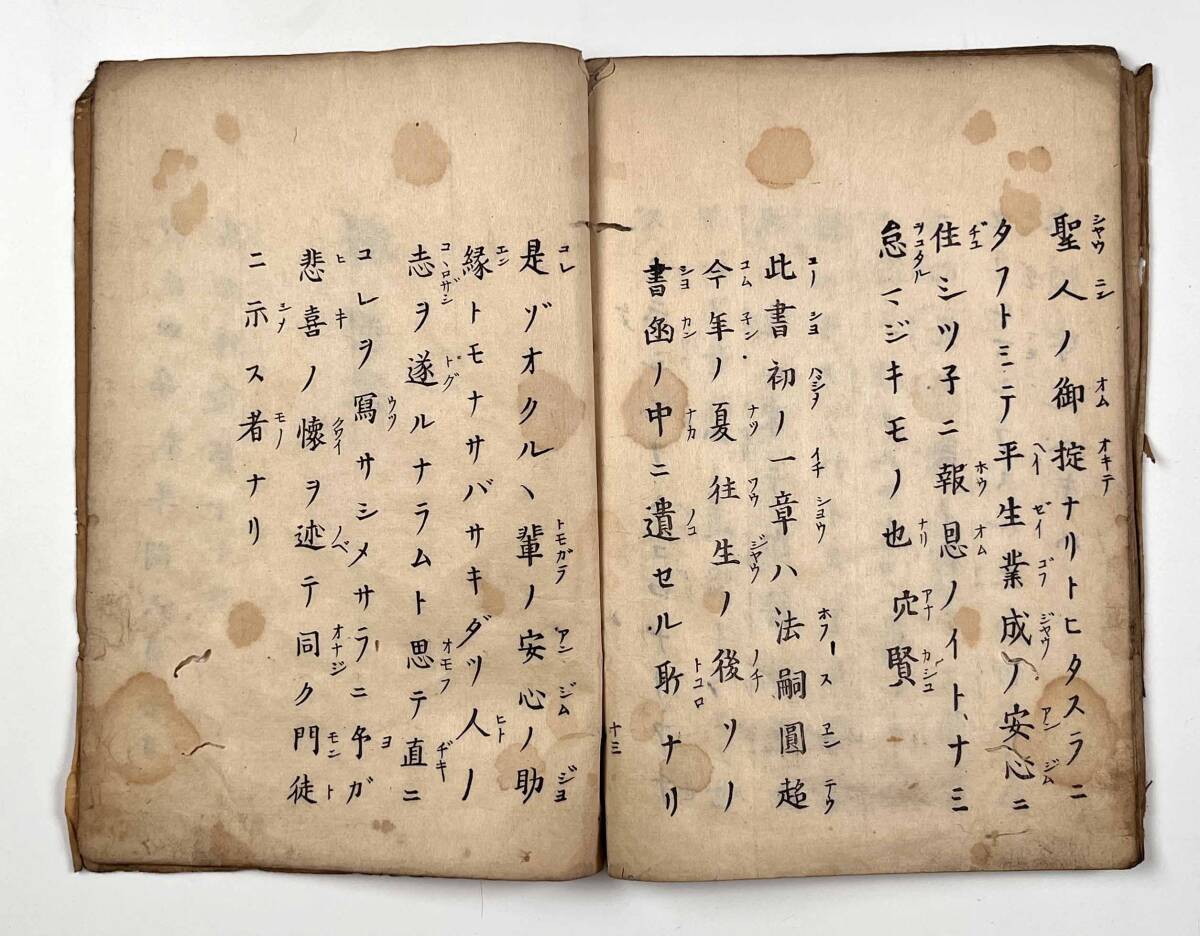 聖人ノ御掟ナリトヒタスラニ
タフトミテ平生業成ノ安心ニ
住シツ子ニ報恩ノイトヽナミ
怠マジキモノ也穴賢
此書初ノ一章ハ法嗣圓超
今年ノ夏往生ノ後ソノ
書函ノ中ニ遺セル所ナリ
十三
是ゾオクルヽ輩ノ安心ノ助
縁トモナサバサキダツ人ノ
志ヲ遂ルナラムト思テ直ニ
コレヲ寫サシメサラニ予ガ
悲喜ノ懷ヲ述テ同ク門徒
ニ示ス者ナリ